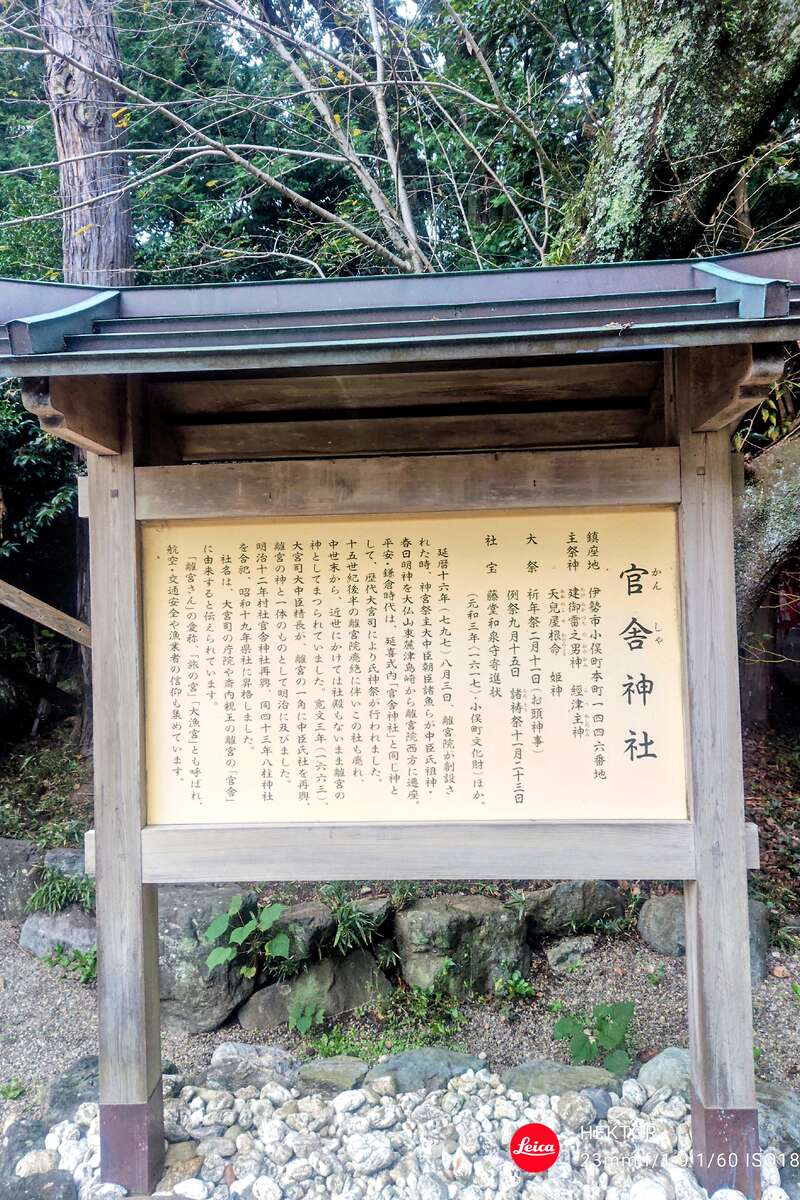 官舎神社
かんしゃ
鎮座地 伊勢市小俣町本町一四四六番地
主祭神 建御雷之男神 經津主神
天兒屋根命 姫神
大祭 祈年祭二月十一日(お頭神事)
例祭九月十五日 諸祷祭十一月二十三日
社宝 藤堂和泉守寄進状
(元和三年(一六一七)・小俣町文化財)ほか。
延暦十六年(七九七)八月三日、離宮院が創設さ
れた時、神宮祭主大中臣朝臣諸魚らが中臣氏祖神・
春日明神を大仏山東麓津島崎から離宮院西方に遷座。
平安・鎌倉時代は、延喜式内「官舎神社」と同じ神と
して、歴代大宮司により氏神祭が行われました。
十五世紀後半の離宮院廃絶に伴いこの社も廃れ、
中世末から、近世にかけては社殿もないまま離宮の
神としてまつられていました。寛文三年(一六六三)、
大宮司大中臣精長が、離宮の一角に中臣氏社を再興。
離宮の神と一体のものとして明治に及びました。
明治十二年村社官舎神社再興、同四十三年八柱神社
を合祀、昭和十九年県社に昇格しました。
社名は、大宮司の庁院や斎内親王の離宮の「官舎」
に由来すると伝えられています。
「離宮さん」の愛称、「旅の宮」「大漁宮」とも呼ばれ、
航空・交通安全や漁業者の信仰も集めています。
Leica
HEKTOR
23mm f/1.9 1/60 ISO18